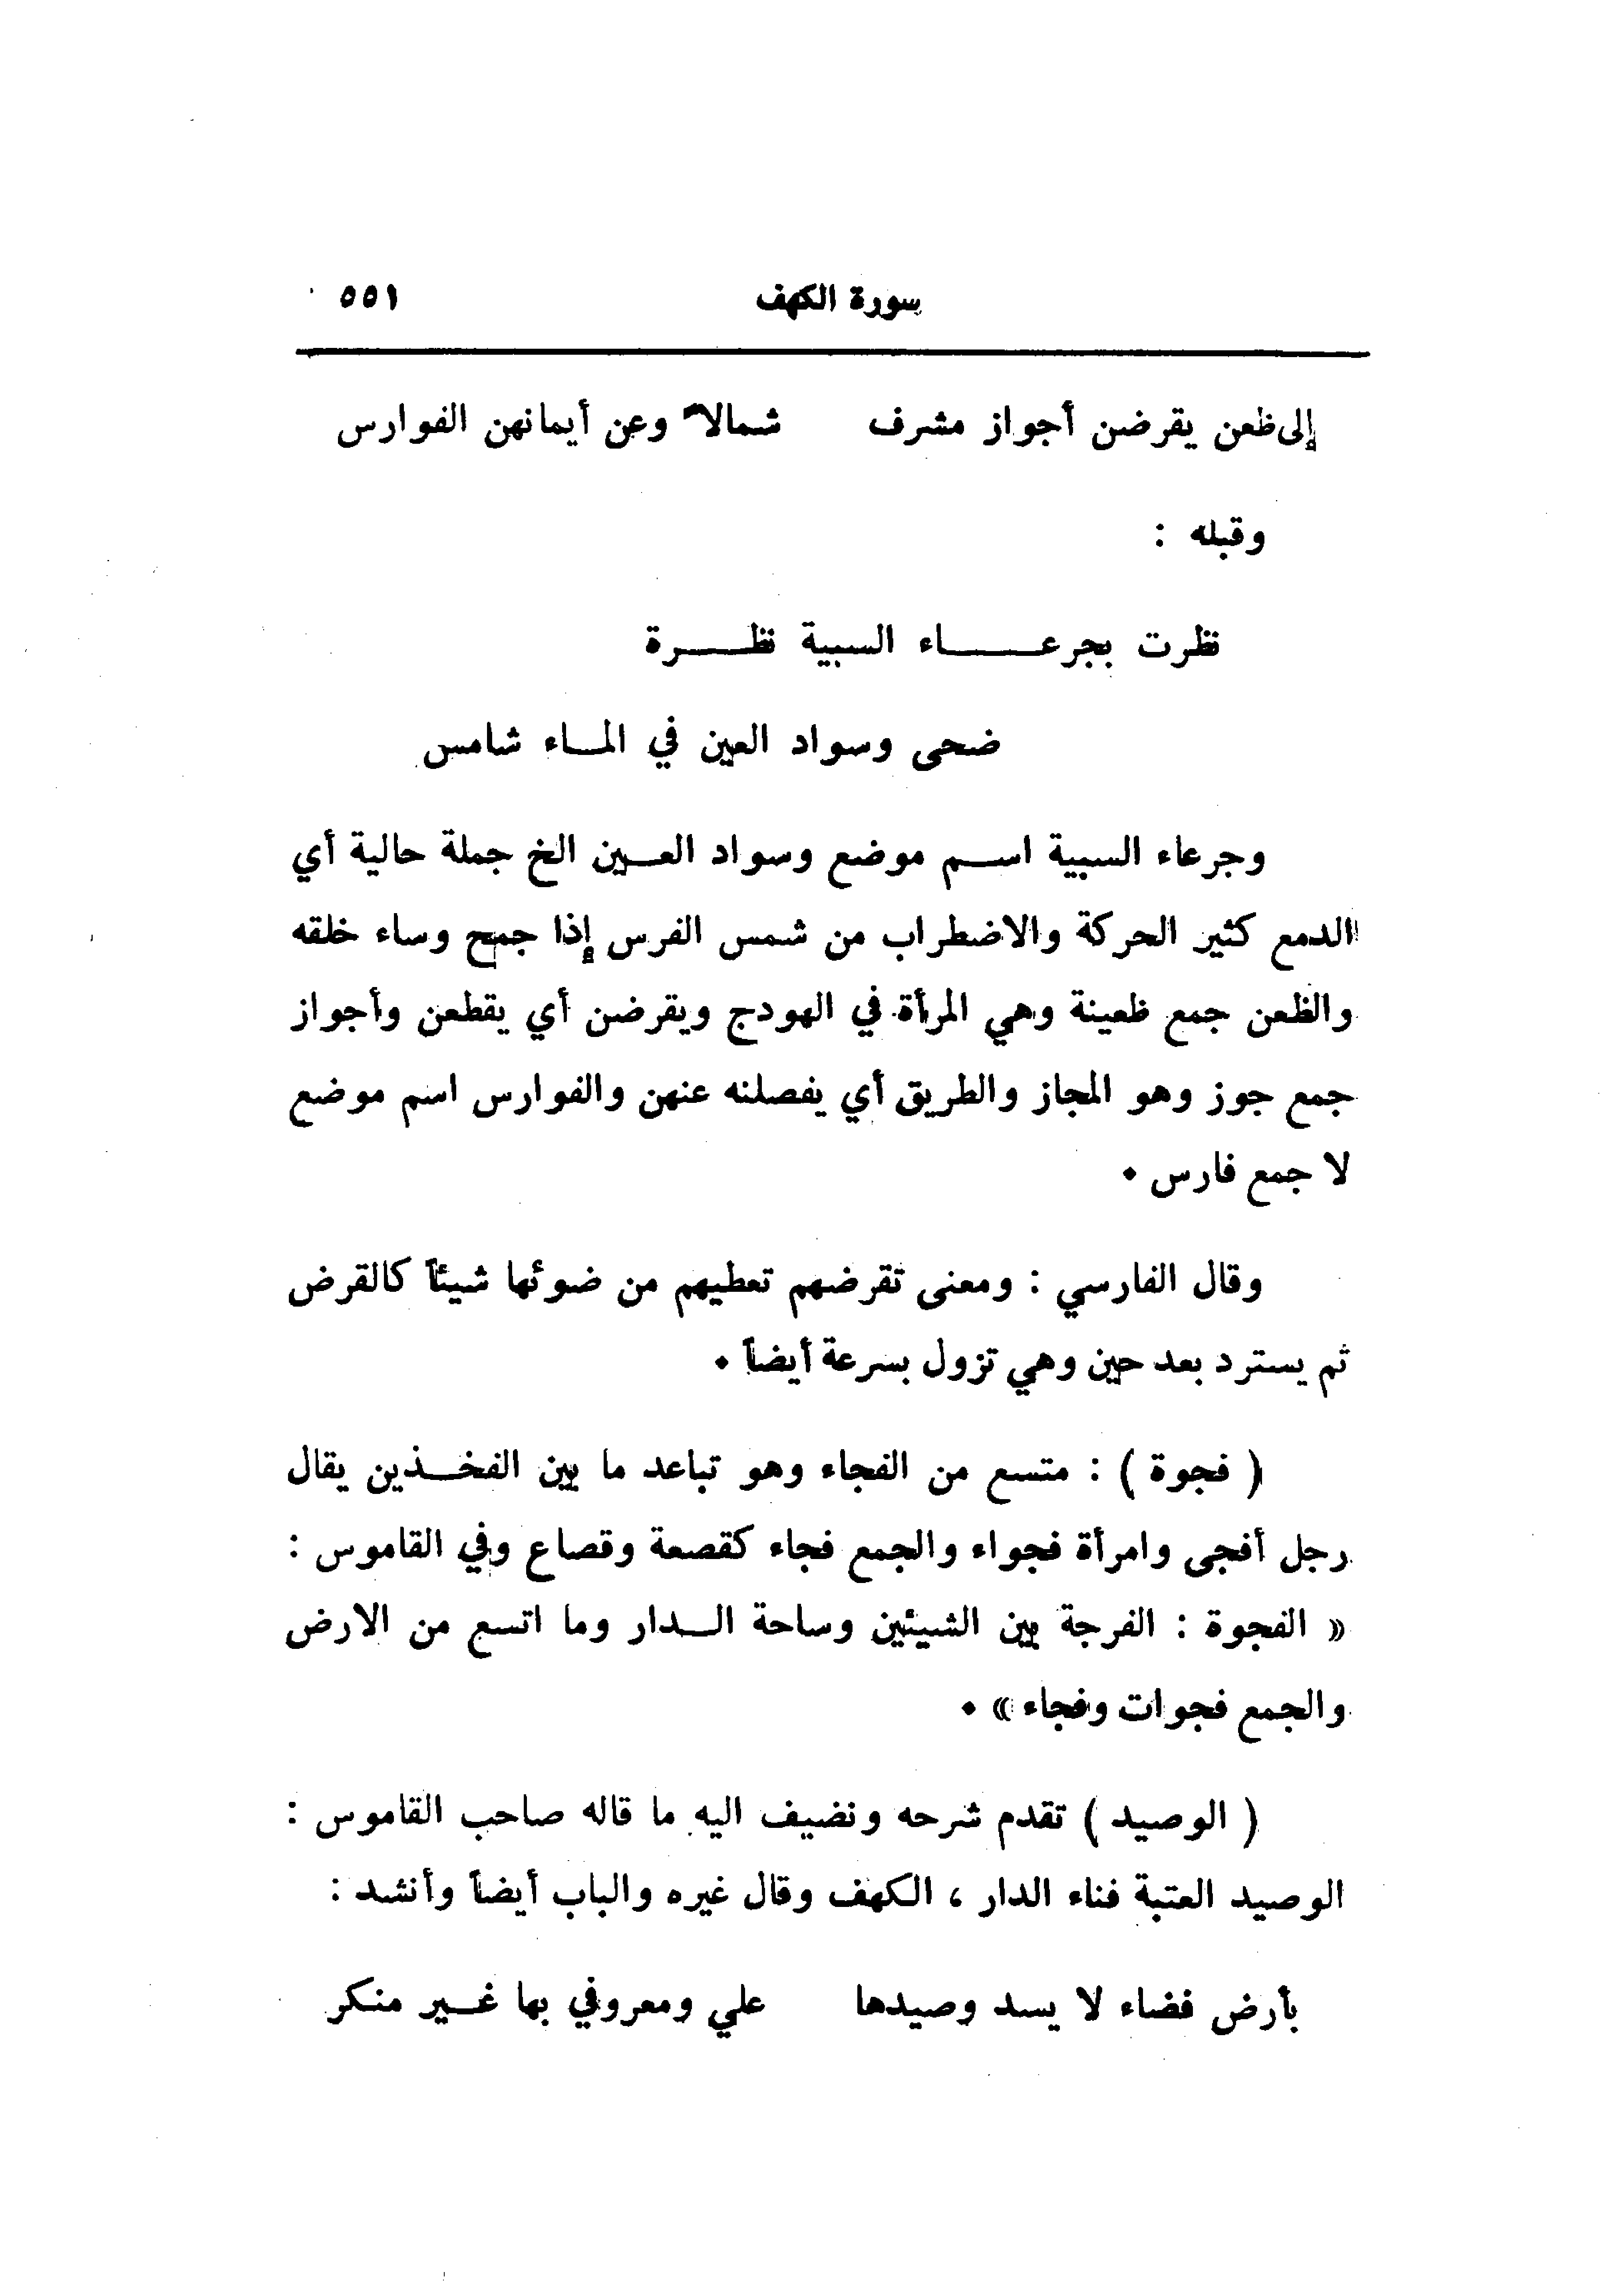 سورة الكهف ٥٥١
إلى ظعن يقرضن أجواز مشرف شمالاً وعن أيمانهن الفوارس
وقبله :
نظرت بجرعاء السبية نظرة
ضحى وسواد العين في الماء شامس
وجرعاء السبية اسم موضع وسواد العين الخ جملة حالية أي
الدمع كثير الحركة والاضطراب من شمس الفرس إذا جمح وساء خلقه
والظعن جمع ظعينة وهي المرأة في الهودج ويقرضن أي يقطعن وأجواز
جمع جوز وهو المجاز والطريق أي يفصلنه عنهن والفوارس اسم موضع
لا جمع فارس .
وقال الفارسي : ومعنى تقرضهم تعطيهم من ضوئها شيئاً كالقرض
ثم يسترد بعد حين وهي تزول بسرعة أيضاً .
( فجوة ) : متسع من الفجاء وهو تباعد ما بين الفخذين يقال
رجل أفجى وامرأة فجواء والجمع فجاء كقصعة وقصاع وفي القاموس :
« الفجوة : الفرجة بين الشيئين وساحة الدار وما اتسع من الارض
والجمع فجوات وفجاء » .
( الوصيد ) تقدم شرحه ونضيف اليه ما قاله صاحب القاموس :
الوصيد العتبة فناء الدار ، الكهف وقال غيره والباب أيضاً وأنشد :
بأرض فضاء لا يسد وصيدها علي ومعروفي بها غير منكر